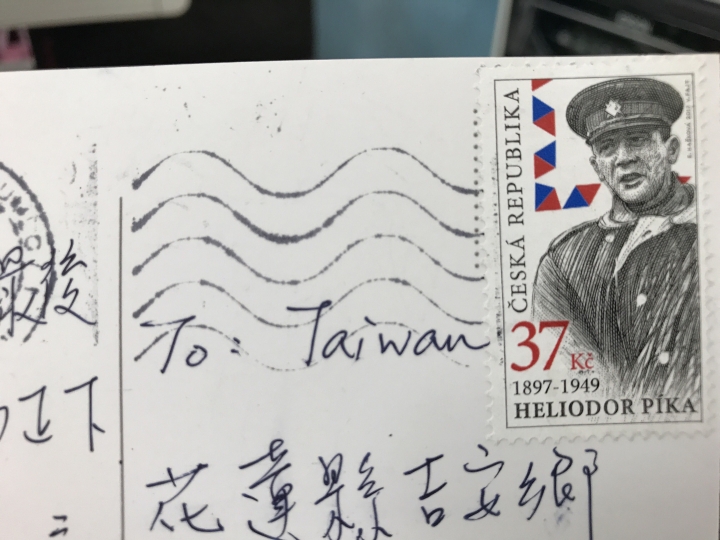 ČESKÁ REPUBLIKA
37 Kč
1897-1949
HELIODOR PÍKA
To: Taiwan
花蓮縣吉安鄉
最後
正下